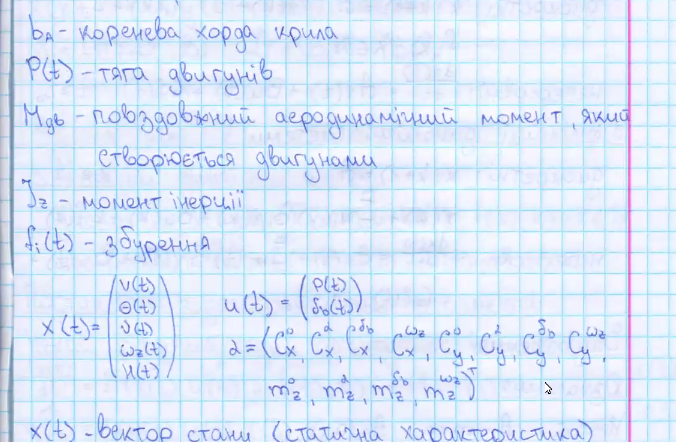 bА - коренева хорда крила
P(t) - тяга двигунів
Mдв - повздовжний аеродинамічний момент, який
створюється двигунами
Jz - момент інерції
fi(t) - збурення
x(t) = (V(t) Θ(t) υ(t) ωz(t) H(t)) u(t) = (P(t) δb(t))
α = (Cx^0, Cx^α, Cx^δb, Cx^ωz, Cy^0, Cy^α, Cy^δb, Cy^ωz,
mz^0, mz^α, mz^δb, mz^ωz)^T
x(t) - вектор стани (статична характеристика)